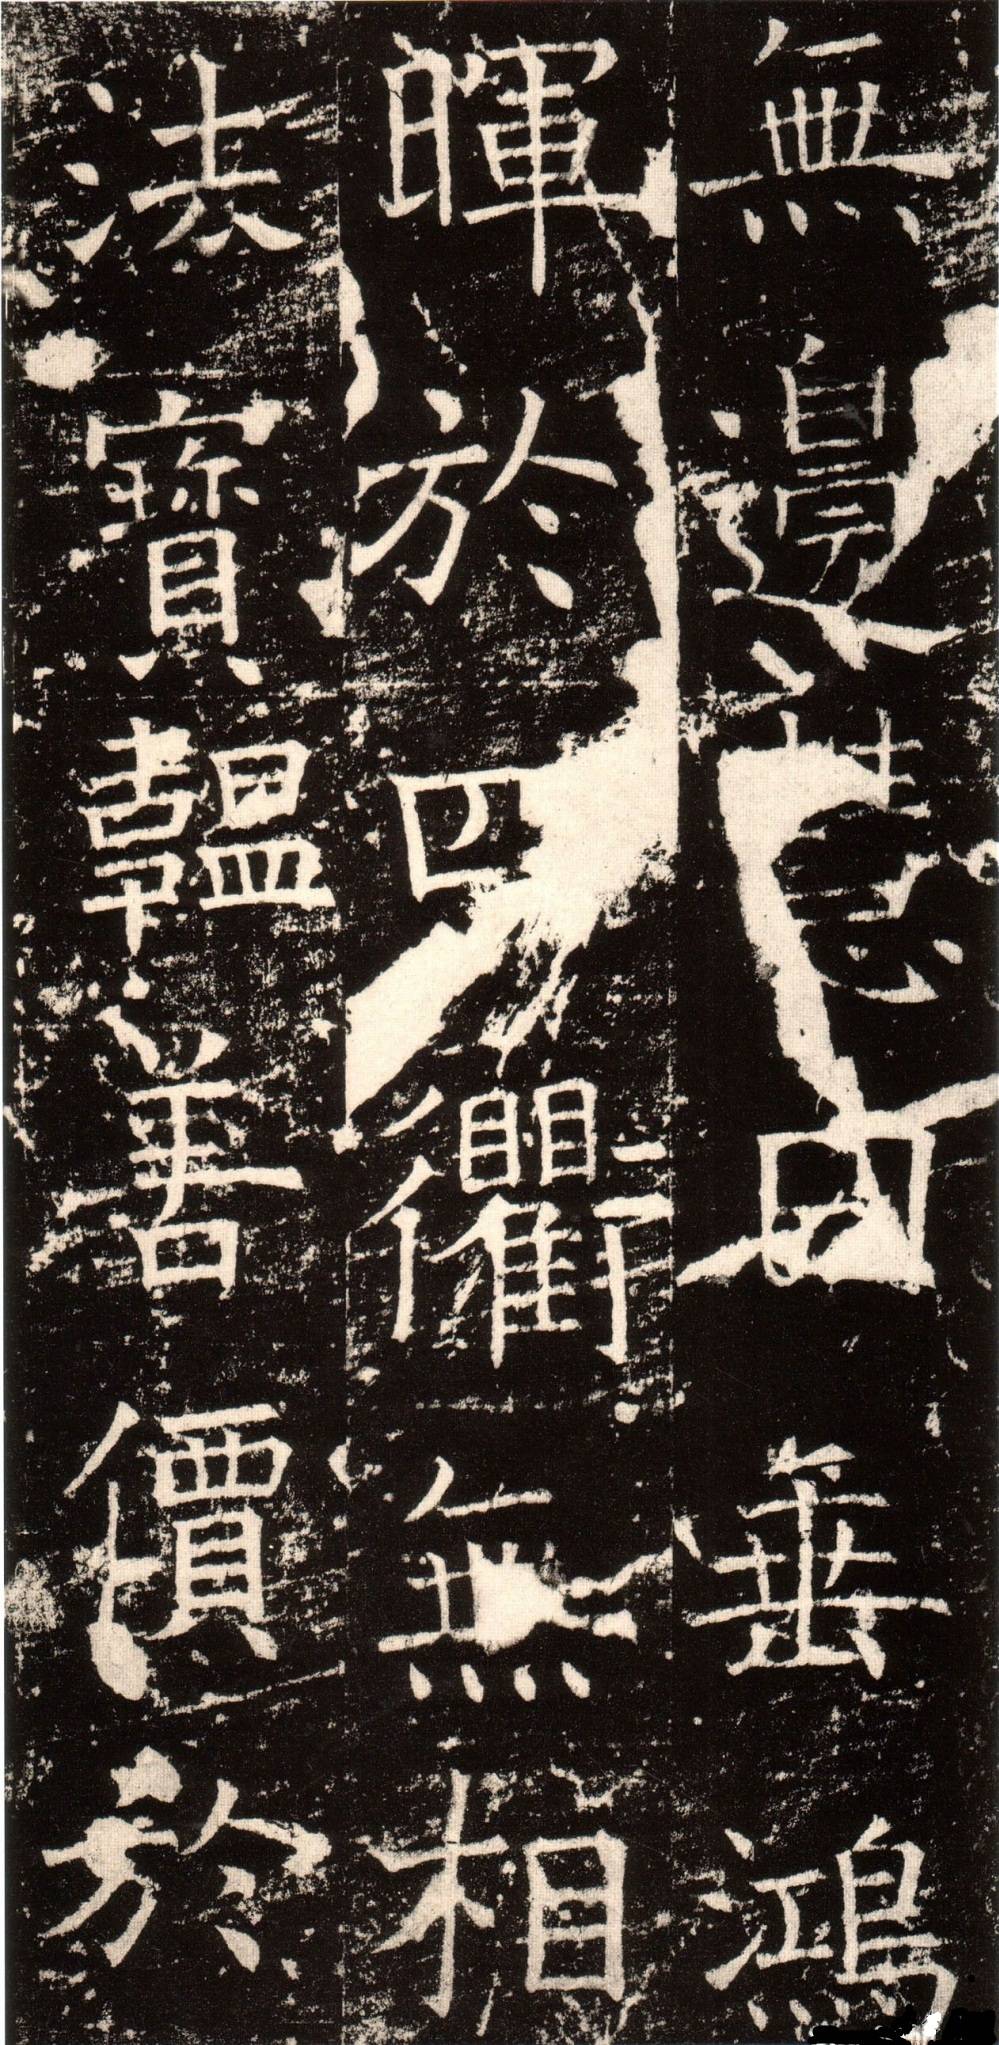 無邊慧日垂鴻
暉於四衢無相
法寶韞善價於